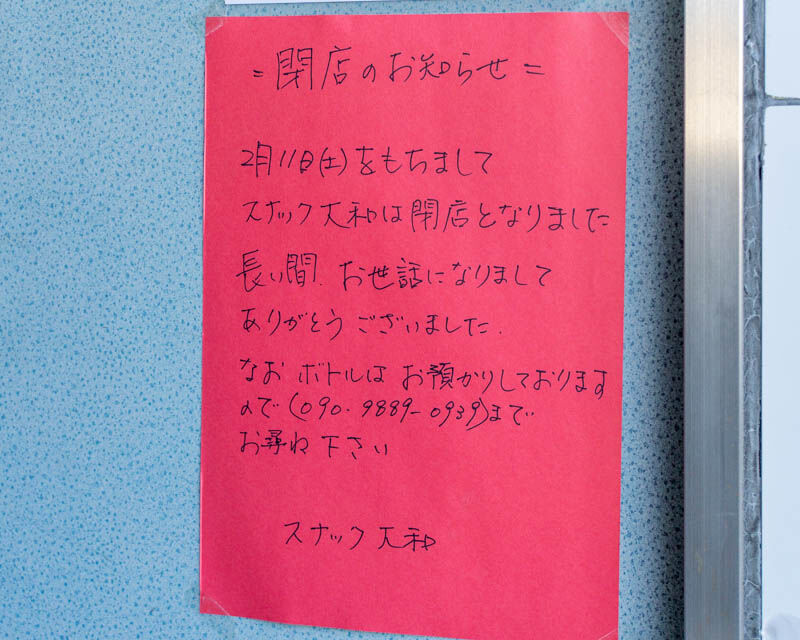 =閉店のお知らせ=
2月11日(土)をもちまして
スナック大和は閉店となりました
長い間、お世話になりまして
ありがとうございました.
なお ボトルは お預かりしております
ので(090-9889-0939)まで
お尋ね下さい
スナック 大和